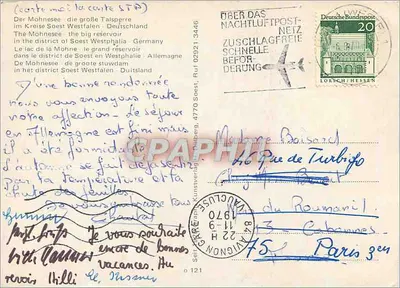 (cartes moi la carte STP)
Der Möhnesee die große Talsperre
im Kreise Soest Westfalen Deutschland
The Möhnesee the big reservoir
in the district of Soest Westphalia Germany
Le lac de la Möhne le grand réservoir
dans le district de Soest en Westphalie Allemagne
De Möhnesee de groote stuwdam
in het district Soest Westfalen Duitsland
D'une bonne randonnée
nous vous envoyons toute
notre affection. Le séjour
en Allemagne est fini mais
il a été formidable
la température et la
chute des feuilles
Je vous souhaite
encore de bonnes
vacances. Au
revoir Willi
4770 Soest Ruf 02921 3446
o 121
ÜBER DAS
NACHTLUFTPOST-
NETZ
ZUSCHLAGFREIE
SCHNELLE
BEFÖR-
DERUNG
Deutsche Bundespost
20
LORSCH/HESSEN
Madame Boisard
46 Rue de Turbigo
du Roumanil
13 - Cabannes
75 - Paris 3en
84 AVIGNON GARE
VAUCLUSE
22 H
11-9
1970
PRCARTE